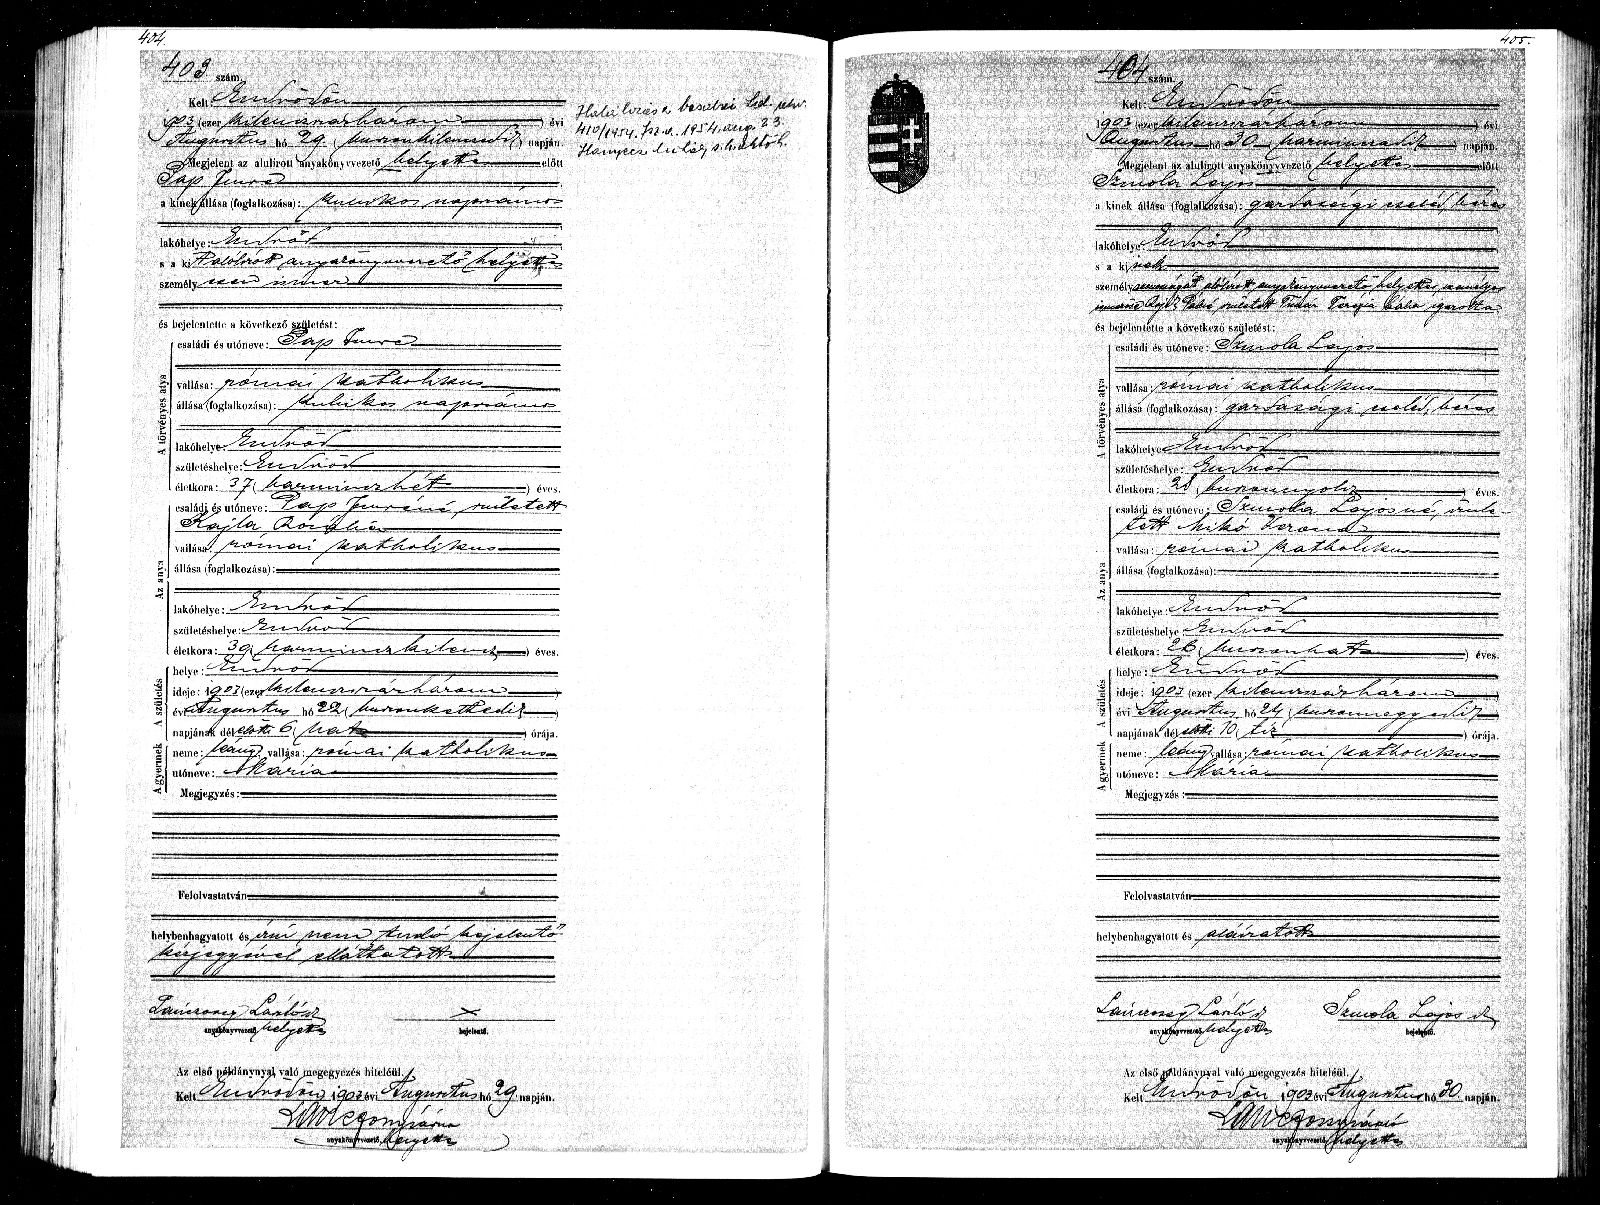 404.
403 szám.
Kelt: Endrődön
1903 (ezer kilenczszázhárom) évi
Augusztus hó 29 (huszonkilenczedik) napján.
Megjelent az alulirott anyakönyvvezető helyettes előtt
Pap Imre
a kinek állása (foglalkozása): kubikos napszámos
lakóhelye: Endrőd
s a kit alólírott anyakönyvvezető helyettes
személyesen ismer
és bejelentette a következő születést:
A törvényes atya
családi és utóneve: Pap Imre
vallása: római katholikus
állása (foglalkozása): kubikos napszámos
lakóhelye: Endrőd
születéshelye: Endrőd
életkora: 37 (harminczhét) éves.
Az anya
családi és utóneve: Pap Imréné, született
Kajla Rozália
vallása: római katholikus
állása (foglalkozása):
lakóhelye: Endrőd
születéshelye: Endrőd
életkora: 39 (harminczkilencz) éves.
A születés
helye: Endrőd
ideje: 1903 (ezer kilenczszázhárom)
évi Augusztus hó 22 (huszonkettedik)
napjának dél előtti 6 (hat) órája.
A gyermek
neme: leány, vallása: római katholikus
utóneve: Mária
Megjegyzés:
Felolvastatván
helybenhagyatott és írni nem tudó bejelentő
kézjegyével elláttatott
László
anyakönyvvezető helyettes
x
bejelentő.
Az első példánynyal való megegyezés hiteléül.
Kelt Endrődön 1903 évi Augusztus hó 29. napján.
anyakönyvvezető helyettes
410/1954. 1954. aug. 23.
405.
404 szám.
Kelt: Endrődön
1903 (ezer kilenczszázhárom) évi
Augusztus hó 30 (harminczadik) napján.
Megjelent az alulirott anyakönyvvezető helyettes előtt
Szmola Lajos
a kinek állása (foglalkozása): gazdasági cseléd, béres
lakóhelye: Endrőd
s a kinek
személyazonosságát alólírott anyakönyvvezető helyettes, személyes
született Terézia bába igazolta
és bejelentette a következő születést:
A törvényes atya
családi és utóneve: Szmola Lajos
vallása: római katholikus
állása (foglalkozása): gazdasági cseléd, béres
lakóhelye: Endrőd
születéshelye: Endrőd
életkora: 28 (huszonnyolcz) éves.
Az anya
családi és utóneve: Szmola Lajosné, szüle-
tett Mikó Verona
vallása: római katholikus
állása (foglalkozása):
lakóhelye: Endrőd
születéshelye Endrőd
életkora: 26 (huszonhat) éves.
A születés
helye: Endrőd
ideje: 1903 (ezer kilenczszázhárom)
évi Augusztus hó 24 (huszonnegyedik)
napjának dél előtti 10 (tíz) órája.
A gyermek
neme: leány, vallása: római katholikus
utóneve: Mária
Megjegyzés:
Felolvastatván
helybenhagyatott és aláíratott
László
anyakönyvvezető helyettes
Szmola Lajos
bejelentő.
Az első példánynyal való megegyezés hiteléül.
Kelt Endrődön 1903 évi Augusztus hó 30. napján.
anyakönyvvezető helyettes